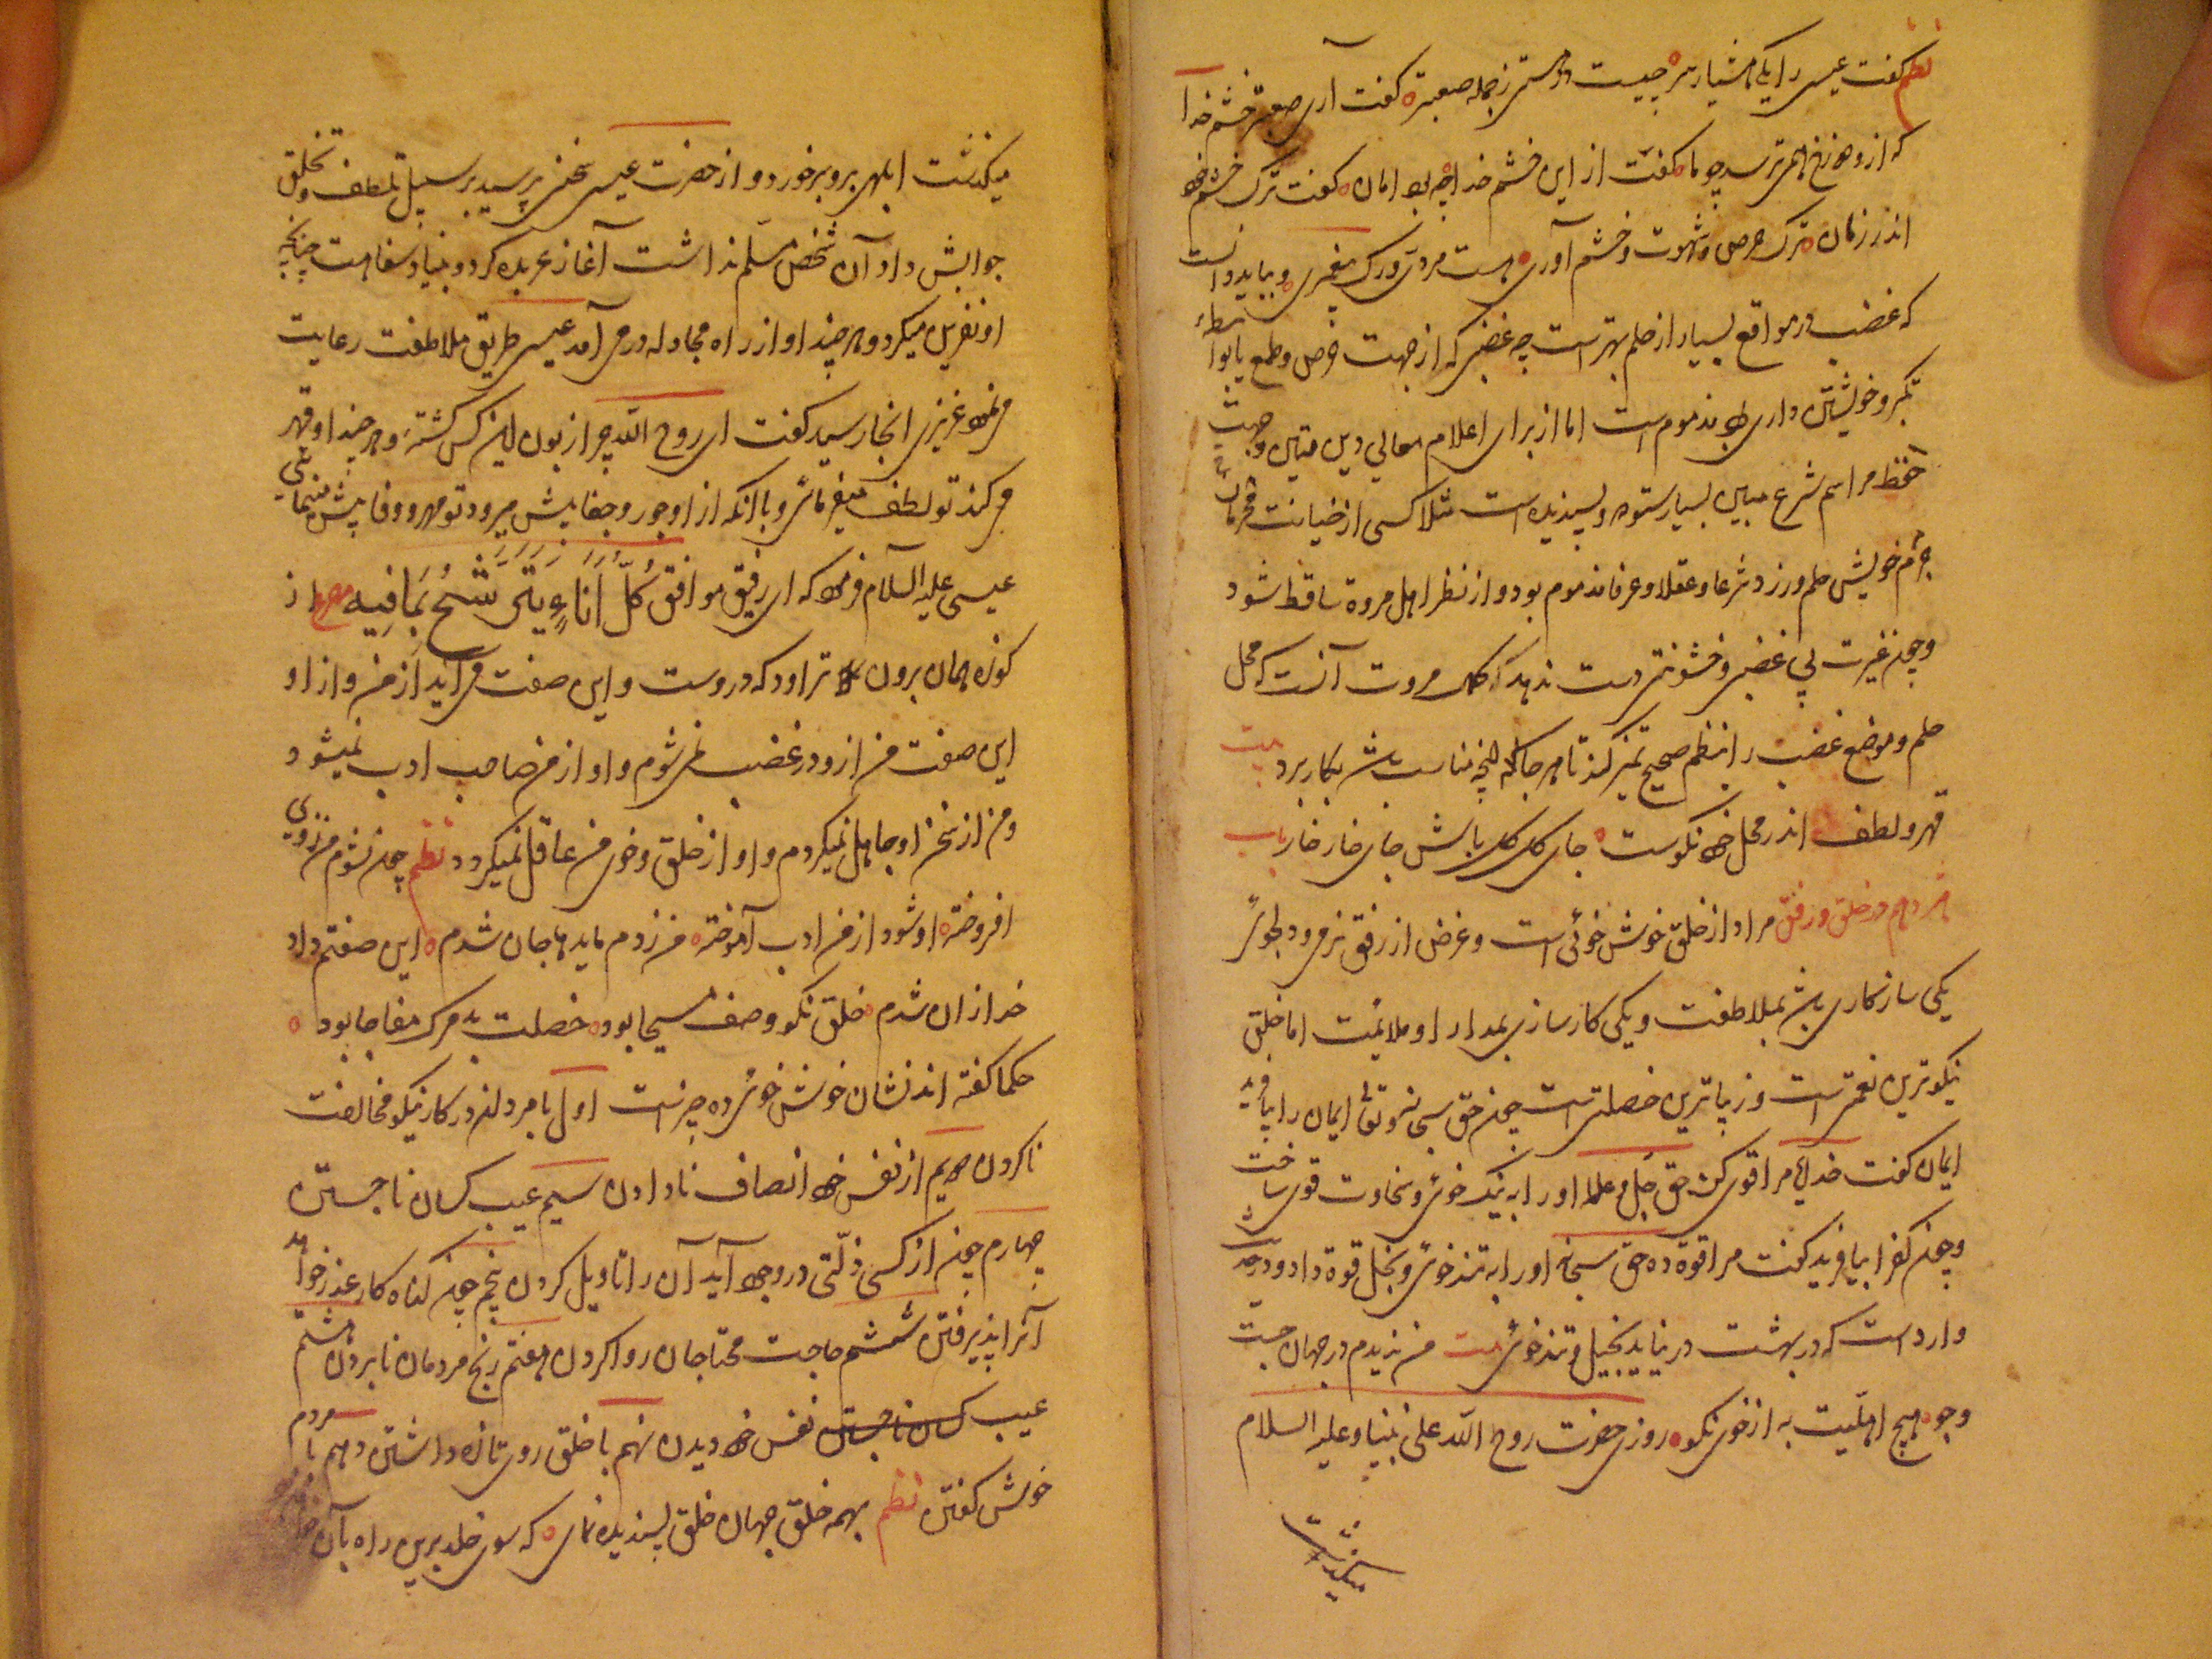 نظم گفت عیسی را یکی هشیار سر ه چیست در هستی ز جمله صعبتر ه گفت آری صعبتر خشم خدا
که ازو دوزخ همی ترسد چو ما ه گفت از این خشم خدا چه بود امان ه گفت ترک خشم خود
اندر زمان ه ترک حرص و شهوت و خشم آوری ه هست مردی و رک پیغمبری ه و بباید دانست
که غضب در مواقع بسیار از حلم بهتر است چه غضبی که از جهت حرص و طمع یا بواسطهٔ
تکبر و خویشتن داری بود مذموم است اما از برای اعلام معالی دین متین و جهت
حفظ مراسم شرع مبین بسیار ستوده و پسندیده است مثلا کسی از خیانت محرمان
حرم خویش حلم ورزد شرعا و عقلا و عرفا مذموم بود و از نظر اهل مروة ساقط شود
و چون غیرت بی غضبی و خشونتی دست ندهد کمال مروت آنست که محل
حلم و موضع غضب را بنظم صحیح تمیز کند تا هر جا که آنچه مناسب باشد بکار برد بیت
قهر و لطف اندر محل خود نکوست ه جای گل گل باش جای خار خار باب
هژدهم در خلق و رفق مراد از خلق خوش خوئی است و غرض از رفق نرمی و دلجوئی
یکی سازگاری باشد بملاطفت و یکی کارسازی بمدارا و ملایمت اما خلق
نیکوترین نعمتی است و زیباترین خصلتی است چون حق سبحانه و تعالی ایمان را بیافرید
ایمان گفت خدایا مرا قوی کن حق جل و علا او را به نیک خوئی و سخاوت قوی ساخت
و چون کفر را بیافرید گفت مرا قوة ده حق سبحانه او را به تند خوئی و بخل قوة داد و در حدیث
وارد است که در بهشت در نیاید بخیل و تند خوئی بیت من ندیدم در جهان جست
و جو ه هیچ اهلیت به از خوی نکو ه روزی حضرت روح الله علی نبینا و علیه السلام
میکذشت
میکذشت ابلهی برو برخورد و از حضرت عیسی سخنی پرسید بر سبیل تلطف و تخلق
جوابش داد آن شخص مسلم نداشت آغاز عربده کرد و بنیاد سفاهت چنانچه
او نفرین میکرد و هر چند او از راه مجادله در می آمد عیسی طریق ملاطفت رعایت
می نمود عزیزی انجا رسید گفت ای روح الله چرا زبون این کس گشتهٔ و هر چند او قهر
می کند تو لطف میفرمائی و با آنکه از او جور و جفا پیش میرود تو مهر و وفا پیش مینمائی
عیسی علیه السلام فرمود که ای رفیق موافق کُلُّ اَنَاءٍ یَتَرَشَّحُ بِمَا فِیه مصرع از
کوزه همان برون تراود که دروست و این صفت می آید از من و از او
این صفت من ازو در غضب نمی شوم و او از من صاحب ادب نمیشود
و من از سخن او جاهل نمیکردم و او از خلق و خوی من عاقل نمیکردد نظم چون نشوم من ز وی
افروخته ه او شود از من ادب آموخته ه من ز دم مایده جان شدم ه این صفتم داد
خدا زان شدم ه خلق نکو وصف مسیحا بود ه خصلت بد مرک مفاجا بود ه
حکما گفته اند نشان خوش خوئی ده چیز است اول با مردان در کار نیکو مخالفت
نا کردن دویم از نفس خود انصاف نا دادن سیم عیب کسان نا جستن
چهارم چون از کسی ذلّتی در وجود آید آن را تاویل کردن پنجم چون کناه کار عذر خواهد
آنرا پذیرفتن ششم حاجت محتاجان روا کردن هفتم رنج مردمان نابردن هشتم
عیب کسان نا جستن نفس خود دیدن نهم با خلق روی تازه داشتن دهم با مردم
خوش گفتن نظم بهمه خلق جهان خلق پسندیده نمای ه که سوی خلد برین راه بآن